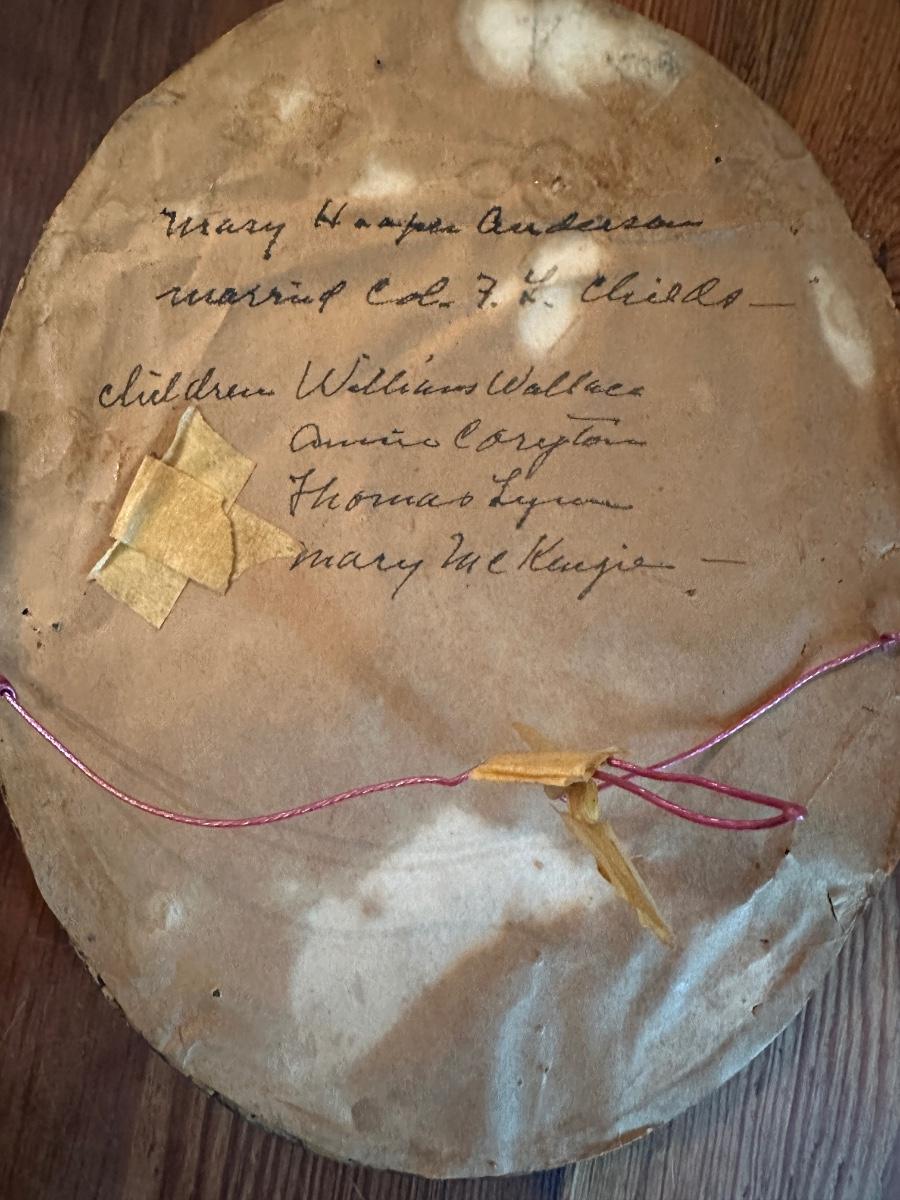 Mary Hooper Anderson
married Col. F. L. Childs —
Children William Wallace
Annie Coryton
Thomas Lynn
Mary McKenzie —